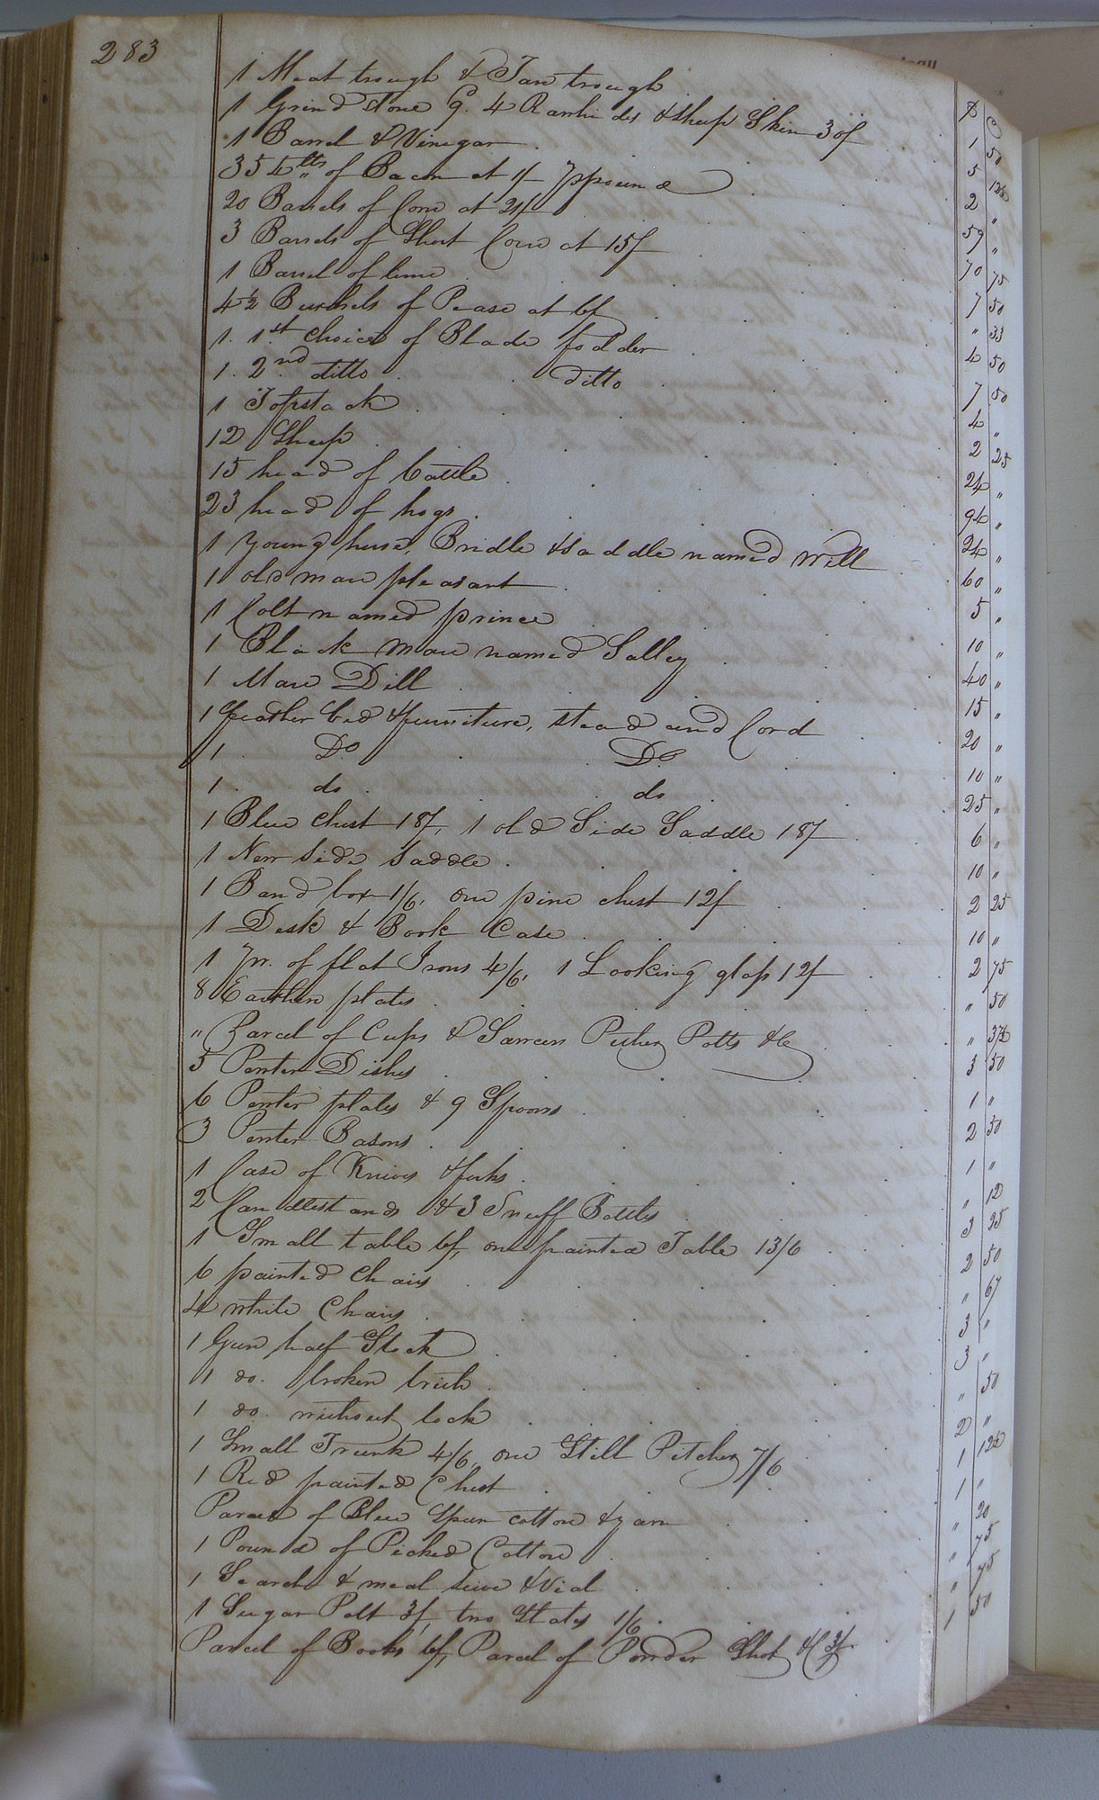 283
$ C
1 Meat trough & Tan trough 1 50
1 Grind stone 9. 4 Rawhides & sheep Skin 30/ 5 12½
1 Barrel & Vinegar 2 "
354 lbs of Bacon at 1/ Pr pound 59 "
20 Barrels of Corn at 21/ 70 75
3 Barrels of Short Corn at 15/ 7 50
1 Barrel of lime " 33
4½ Bushels of Pease at 6/ 4 50
1. 1st Choice of Blade fodder 7 50
1. 2nd ditto ditto 4 "
1 Topstack 2 25
12 Sheep 24 "
15 head of Cattle 94 "
23 head of hogs 24 "
1 Young horse, Bridle & Saddle named Will 60 "
1 old mare pleasant 5 "
1 Colt named prince 10 "
1 Black Mare named Salley 40 "
1 Mare Dill 15 "
1 feather bed & furniture, stead and Cord 20 "
1 Do Do 10 "
1 do do 25 "
1 Blue Chest 18/, 1 old Side Saddle 18/ 6 "
1 New Side Saddle 10 "
1 Band box 1/6, one pine chest 12/ 2 25
1 Desk & Book Case 10 "
1 Pr. of flat Irons 4/6, 1 Looking glass 12/ 2 75
8 Earthen plates " 50
" Parcel of Cups & Saucers Picher Potts &C " 37½
5 Pewter Dishes 3 50
6 Pewter plates & 9 Spoons 1 "
3 Pewter Basons 2 50
1 Case of Knives & forks 1 "
2 Candlestands & 3 Snuff Bottles " 12
1 Small table 6/, one painted Table 13/6 3 25
6 painted Chairs 2 50
4 white Chairs " 67
1 Gun half Stock 3 "
1 do. broken brich 3 "
1 do. without lock " 50
1 Small Trunk 4/6, one Still Pitcher 7/6 2 "
1 Red painted Chest 1 12½
Parcel of Blue Spun cotton & yarn 1 "
1 Pound of Picked Cotton " 20
1 Search & meal sieve & Vial " 75
1 Sugar Pott 3/, two Slates 1/6 " 75
Parcel of Books 6/, Parcel of Powder Shot &C 3/ 1 50